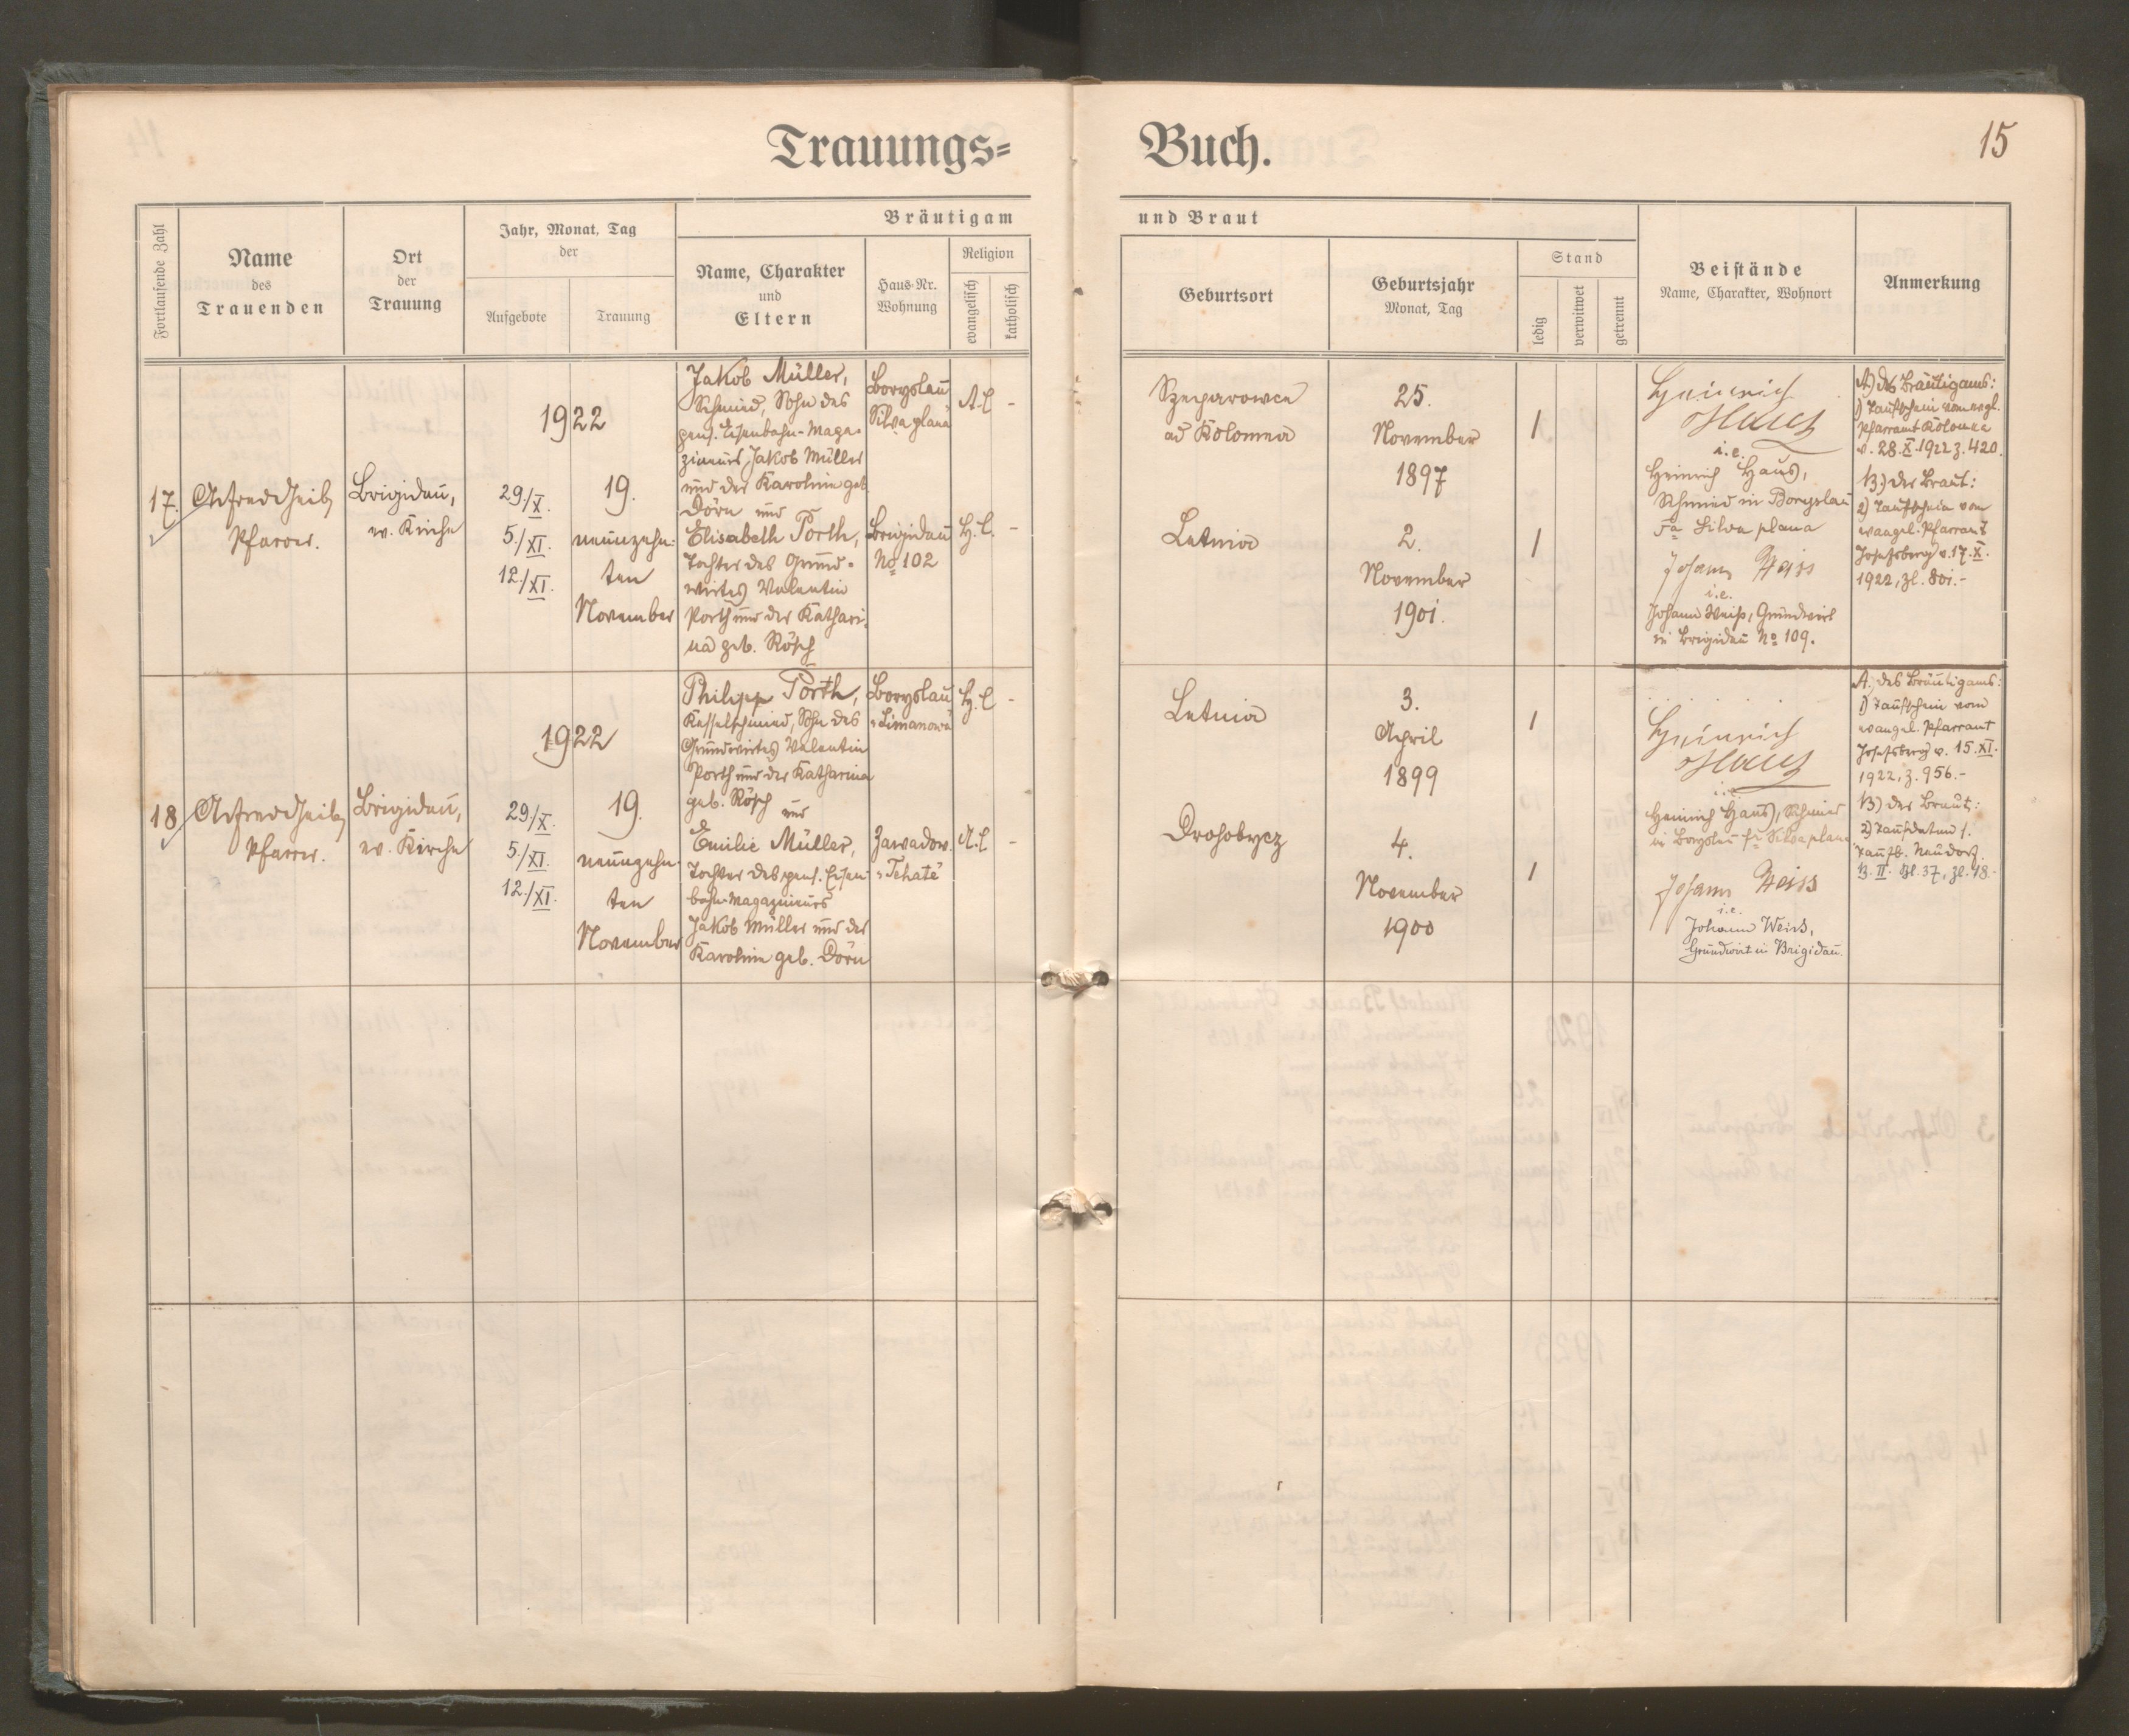 Trauungs=
Buch.
15
Fortlaufende Zahl
Name
des
Trauenden
Ort
der
Trauung
Jahr, Monat, Tag
der
Aufgebote
Trauung
Bräutigam
Name, Charakter
und
Eltern
Haus-Nr.
Wohnung
Religion
evangelisch
katholisch
und Braut
Geburtsort
Geburtsjahr
Monat, Tag
Stand
ledig
verwitwet
getrennt
Beistände
Name, Charakter, Wohnort
Anmerkung
17.
Pfarrer.
Brigidau,
ev. Kirche
1922
29./X.
5./XI.
12./XI.
19.
neunzehn-
ten
November
Jakob Müller,
Schmied, Sohn des
pens. Eisenbahn-Maga-
zineurs Jakob Müller
und der Karoline geb.
Dörn und
Elisabeth Porth,
Tochter des Grund-
wirtes Valentin
Porth und der Kathari-
na geb. Rösch
Boryslau
Silva plana
Brigidau
No 102
A.C.
-
H.C.
-
Szeparowce
ad Kolomea
Letnia
25.
November
1897
2.
November
1901.
1
1
Heinrich
Haus
i.e.
Heinrich Haus,
Schmied in Boryslau
Fa Silva plana
Johann Weiss
i.e.
Johann Weiss, Grundwirt
in Brigidau No 109.
A) des Bräutigams:
1) Taufschein vom evgl.
Pfarramt Kolomea
v. 28.X.1922 z. 420.
B.) der Braut:
2) Taufschein vom
evangel. Pfarramt
Josefsberg v. 17.X.
1922, zl. 801.-
18
Pfarrer.
Brigidau,
ev. Kirche
1922
29./X.
5./XI.
12./XI.
19.
neunzehn-
ten
November
Philipp Porth,
Kesselschmied, Sohn des
Grundwirtes Valentin
Porth und der Katharina
geb. Rösch und
Emilie Müller,
Tochter des pens. Eisen-
bahn-Magazineurs
Jakob Müller und der
Karoline geb. Dörn
Boryslau
"Limanowa"
Zawadow.
"Tehate"
H.C.
-
A.C.
-
Letnia
Drohobycz
3.
April
1899
4.
November
1900
1
1
Heinrich
Haus
i.e.
Heinrich Haus, Schmied
in Boryslau Fa Silva plana
Johann Weiss
i.e.
Johann Weiss,
Grundwirt in Brigidau.
A. des Bräutigams:
1) Taufschein vom
evangel. Pfarramt
Josefsberg v. 15.XI.
1922, z. 956.-
B) der Braut:
2) Taufdatum s.
Taufb. Neudorf.
B. II. Bl. 37, zl. 48.-